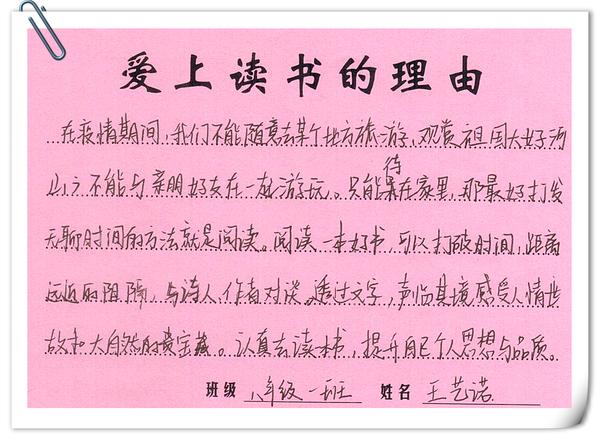 爱上读书的理由
在疫情期间,我们不能随意去某个地方旅游,观赏祖国大好河
山,不能与亲朋好友在一起游玩。只能待在家里,那最好打发
无聊时间的方法就是阅读。阅读一本好书,可以打破时间,距离
远近的阻隔,与诗人、作者对谈。透过文字,声临其境感受人情世
故和大自然的贵宝藏。认真去读本书,提升自己个人思想与品质。
班级 八年级一班 姓名 王艺诺